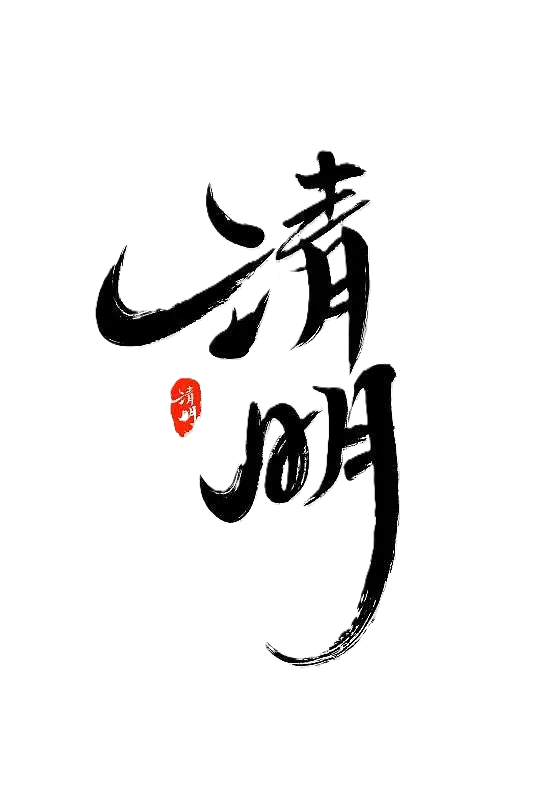 清
明
清明